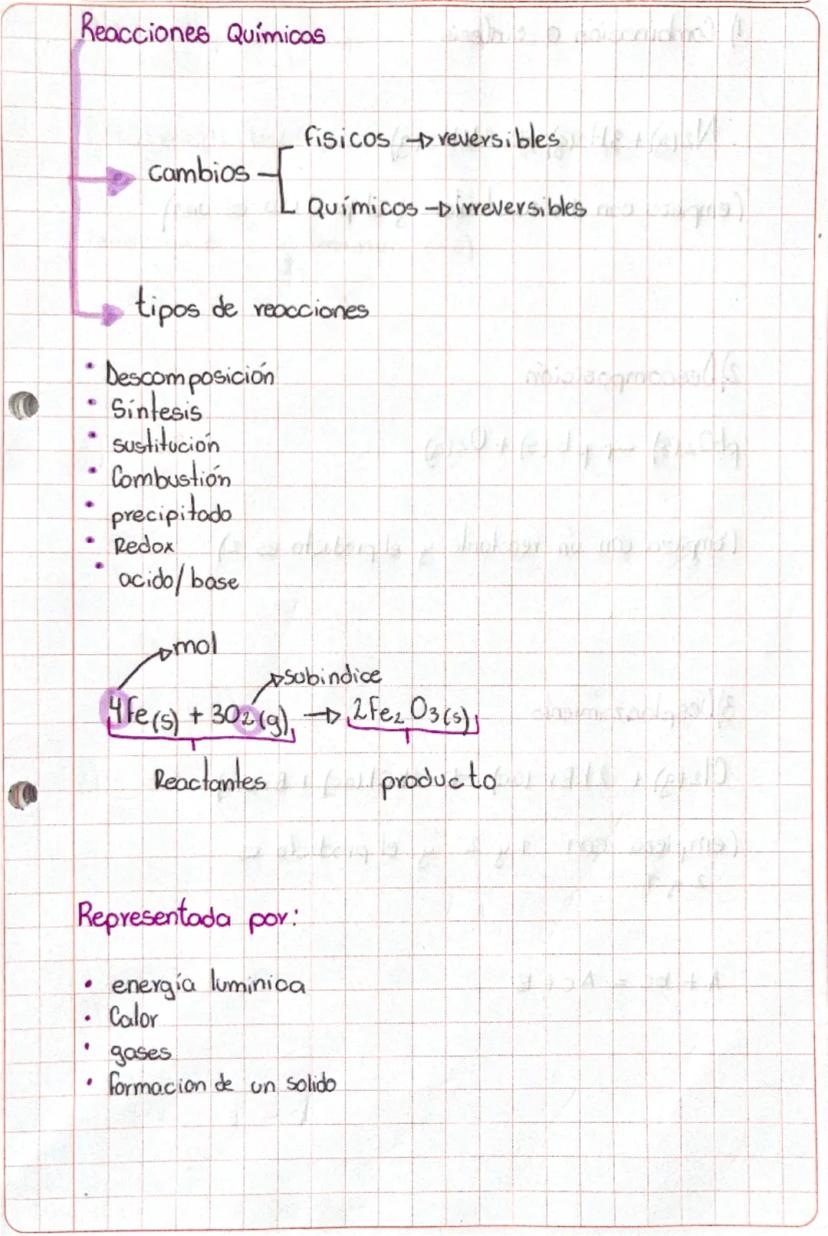 Reacciones Químicas
físicos → reversibles
cambios
Químicos → irreversibles
tipos de reacciones
• Descomposición
• Síntesis
• sustitución
• Combustión
• precipitado
• Redox
• acido/base
mol
subindice
4Fe(s) + 3O2(g) → 2Fe2O3(s)
Reactantes producto
Representada por:
• energía luminica
• Calor
• gases
• formacion de un solido